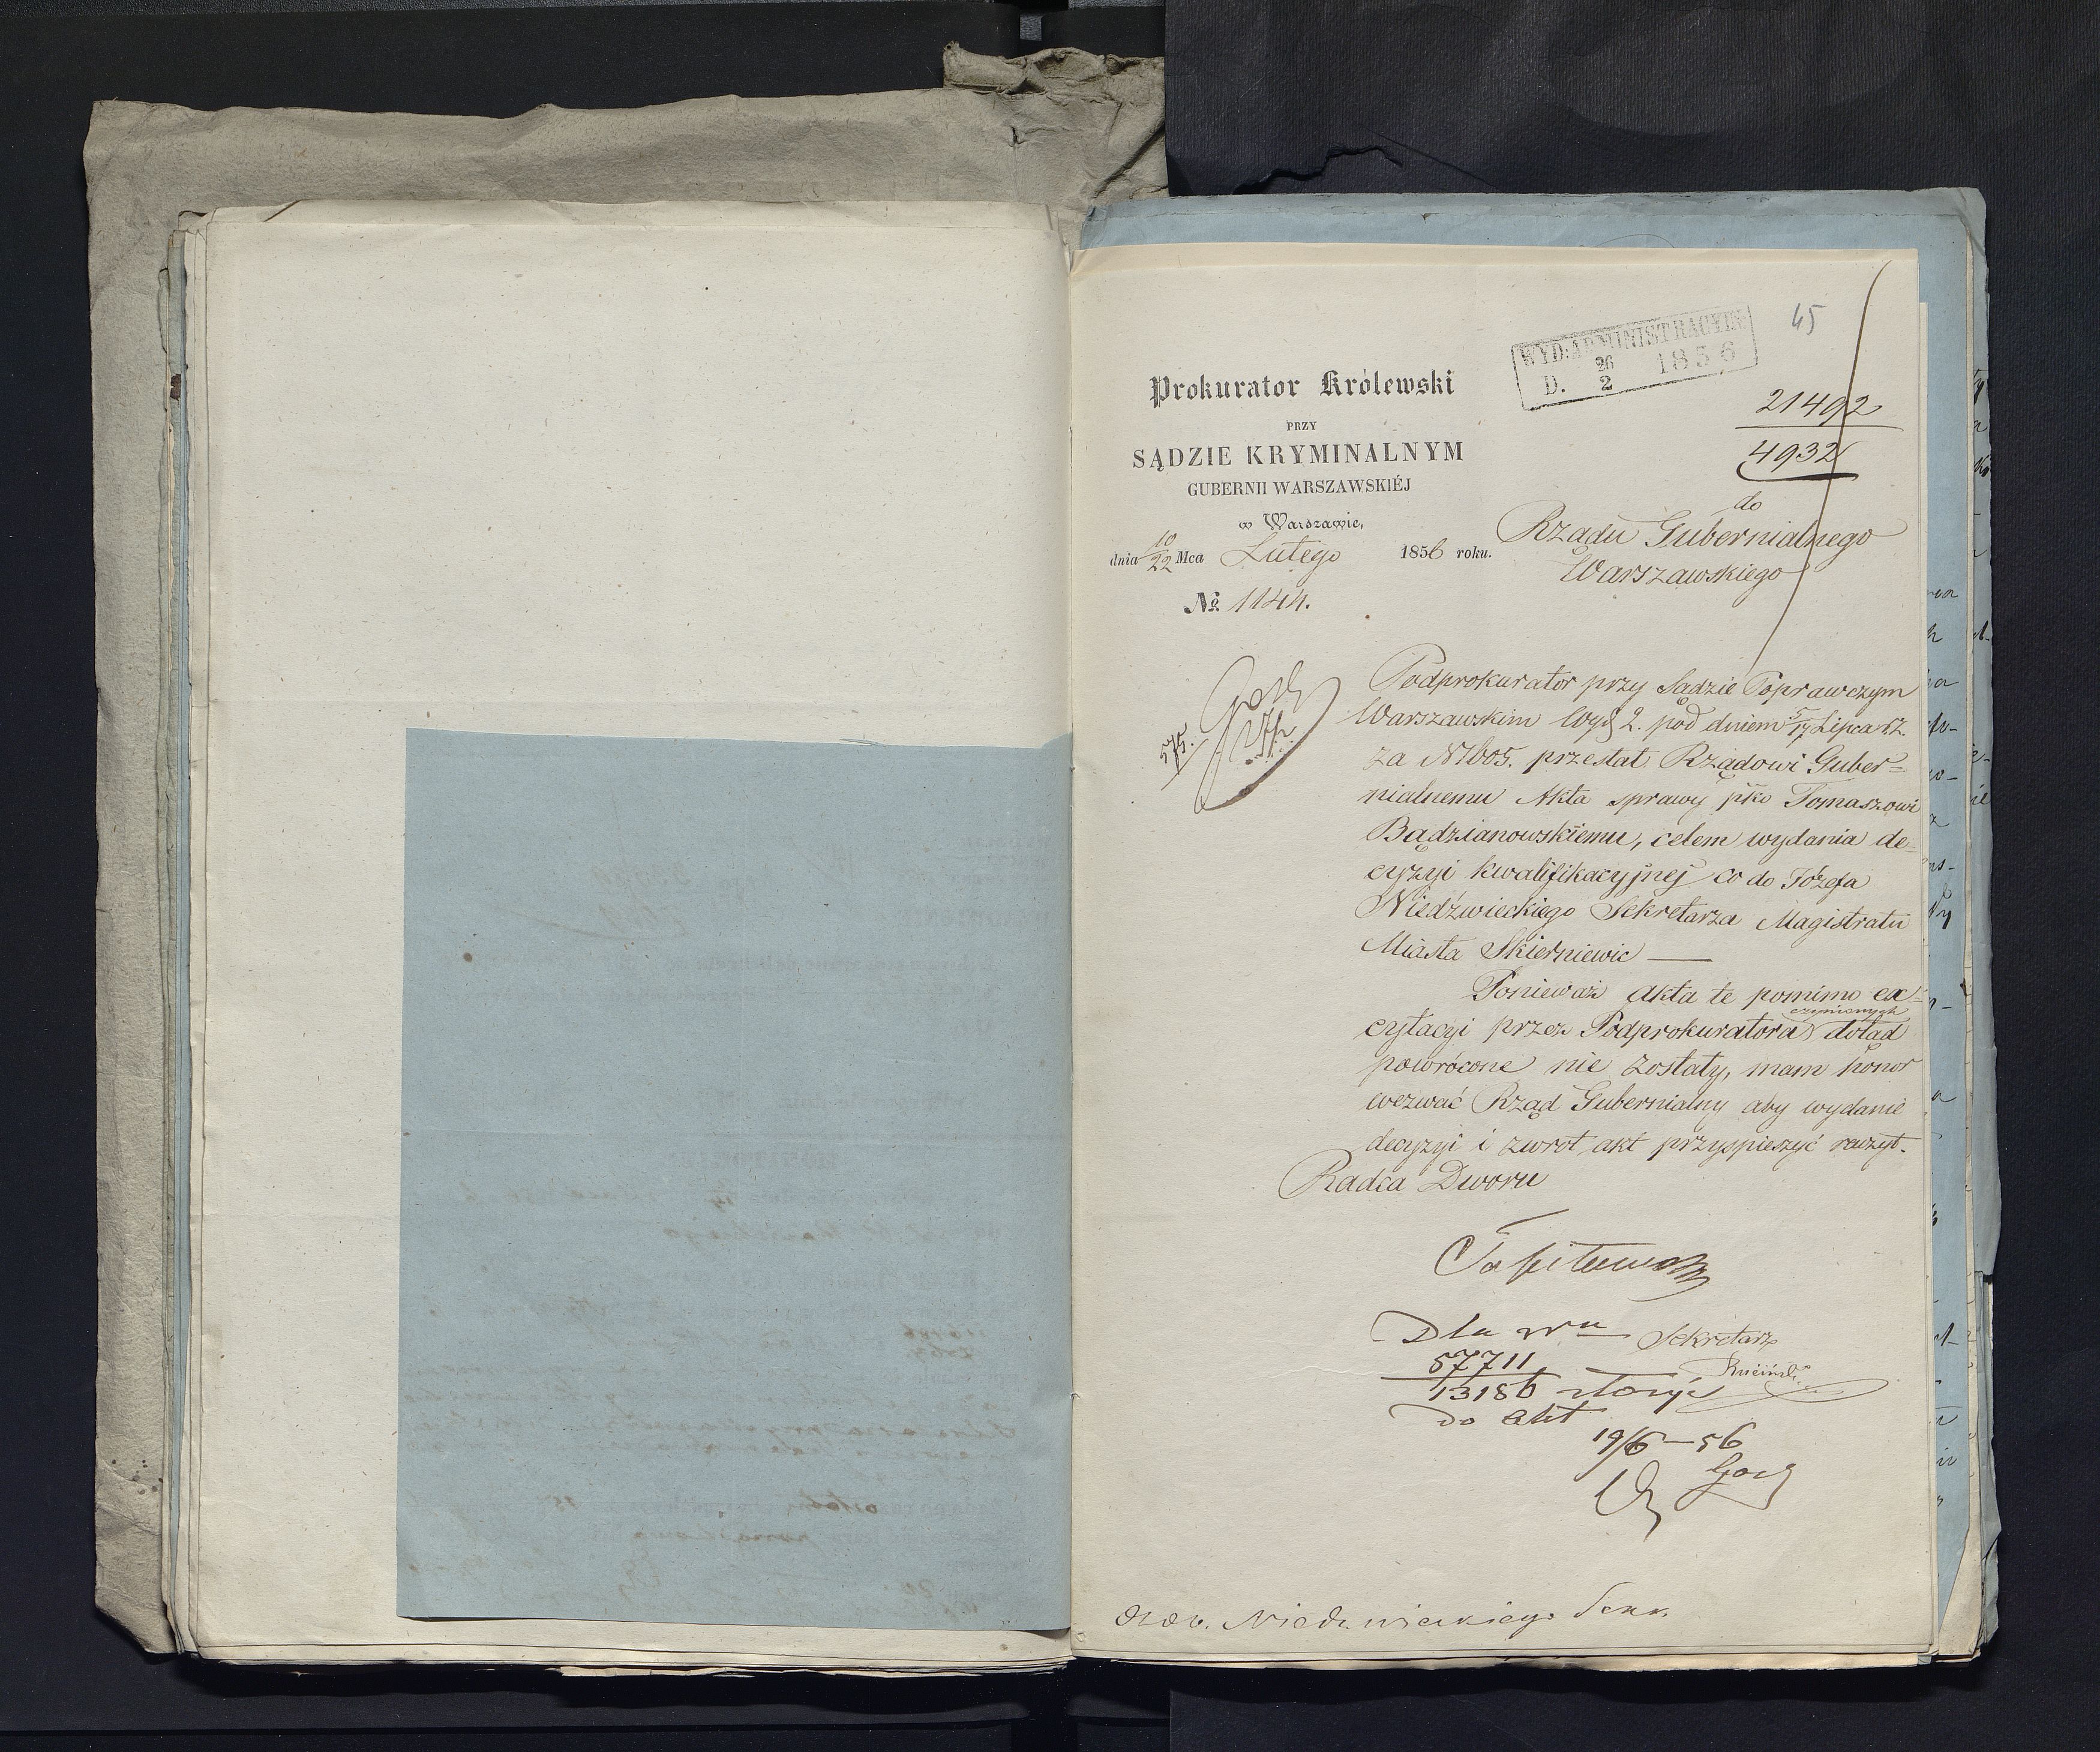 45
WYD: ADMINISTRACYIN
D. 26/2 1856
21492
4932
Prokurator Królewski
PRZY
SĄDZIE KRYMINALNYM
GUBERNII WARSZAWSKIÉJ
w Warszawie,
dnia 10/22 Mca Lutego 1856 roku.
№ 1144.
do
Rządu Gubernialnego
Warszawskiego
575.
Podprokurator przy Sądzie Poprawczym
Warszawskim Wydz 2. pod dniem 5/17 Lipca r.z.
za N 1605. przesłał Rządowi Guber=
nialnemu Akta sprawy pko Tomaszowi
Bądzianowskiemu, celem wydania de=
cyzyi kwalifikacyjnej co do Józefa
Niedźwieckiego Sekretarza Magistratu
Miasta Skierniewic —
Ponieważ Akta te pomimo ex=
cytacyi przez Podprokuratora czynionych dotąd
powrócone nie zostały, mam honor
wezwać Rząd Gubernialny aby wydanie
decyzyi i zwrot akt przyspieszyć raczył.
Radca Dworu
Sekretarz
57711
13186
Do akt
19/6 – 56
Niedzwieckiego Sekr.